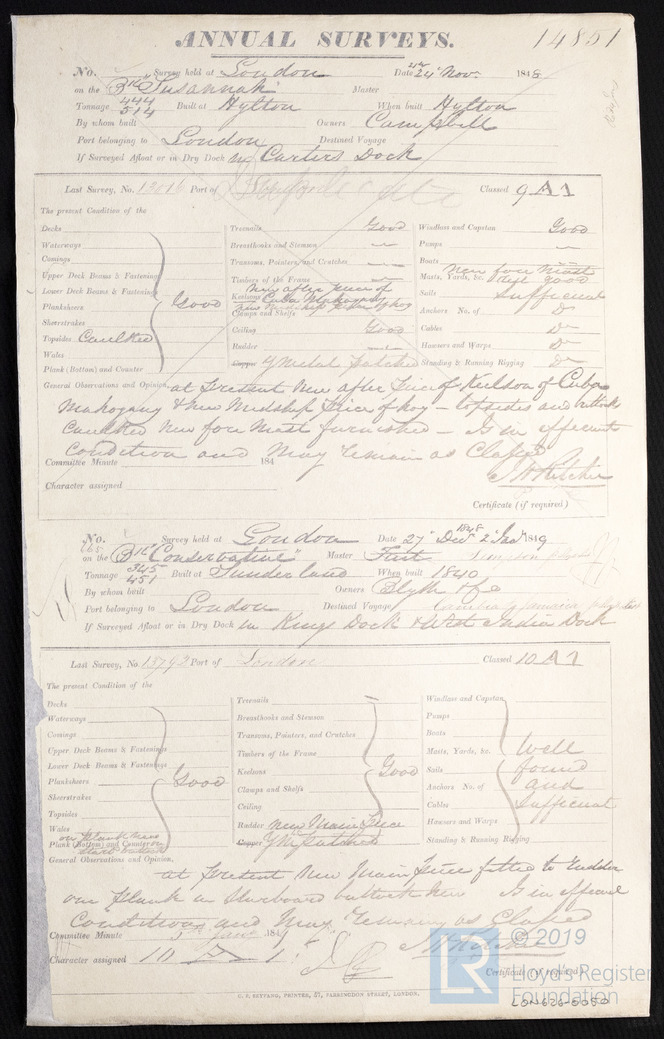 ANNUAL SURVEYS. 14851
No. Survey held at London Date 24 Nov. 1848
on the Bk "Susannah" Master
Tonnage 444 514 Built at Hylton When built Hylton
By whom built Owners Campbell
Port belonging to London Destined Voyage
If Surveyed Afloat or in Dry Dock in Carters Dock
Last Survey, No. 13016 Port of Classed 9 A 1
The present Condition of the
Decks
Waterways
Comings
Upper Deck Beams & Fastenings
Lower Deck Beams & Fastenings
Planksheers Good
Sheerstrakes
Topsides Caulked
Wales
Plank (Bottom) and Counter
Treenails Good
Breasthooks and Stemson
Transoms, Pointers, and Crutches
Timbers of the Frame
Keelsons New after piece of Cuba Mahogany
Clamps and Shelfs
Ceiling Good
Rudder
Copper Y Metal patched
Windlass and Capstan Good
Pumps
Boats
Masts, Yards, &c. New fore Mast rest good
Sails Sufficient
Anchors No. of Do
Cables Do
Hawsers and Warps Do
Standing & Running Rigging Do
General Observations and Opinion, at present New after piece of Keelson of Cuba
Mahogany & New Midship piece of - topsides and
Caulked New fore Mast furnished - Is in efficient
Condition and May remain as Classed
Committee Minute 184
Character assigned
Certificate (if required)
No. Survey held at London Date 27 Decr 1848 2 Jany 1849
on the Bk "Conservative" Master
Tonnage 345 451 Built at Sunderland When built 1840
By whom built Owners Blyth & Co
Port belonging to London Destined Voyage Jamaica
If Surveyed Afloat or in Dry Dock in Kings Dock & West India Dock
Last Survey, No. 13792 Port of London Classed 10 A 1
The present Condition of the
Decks
Waterways
Comings
Upper Deck Beams & Fastenings
Lower Deck Beams & Fastenings
Planksheers Good
Sheerstrakes
Topsides
Wales
one plank new
Plank (Bottom) and Counter
Treenails
Breasthooks and Stemson
Transoms, Pointers, and Crutches
Timbers of the Frame
Keelsons Good
Clamps and Shelfs
Ceiling
Rudder New Main Piece
Copper Y M patched
Windlass and Capstan
Pumps
Boats
Masts, Yards, &c. Well
Sails found
Anchors No. of and
Cables Sufficient
Hawsers and Warps
Standing & Running Rigging
General Observations and Opinion,
at present New Main piece fitted to Rudder
one plank in Starboard buttock New Is in efficient
Condition and May remain as Classed
Committee Minute 5 Jany 1849
Character assigned 10 A 1.
Certificate (if required)
© 2019
LR Lloyd's Register
Foundation
LON626-0050